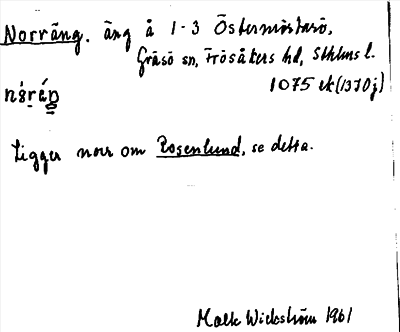 Norräng. äng å 1-3 Östermörtarö,
Gräsö sn, Frösåkers hd, Sthlms l.
1075 ek (1370 j)
Ligger norr om Rosenlund, se detta.
Wickström 1961